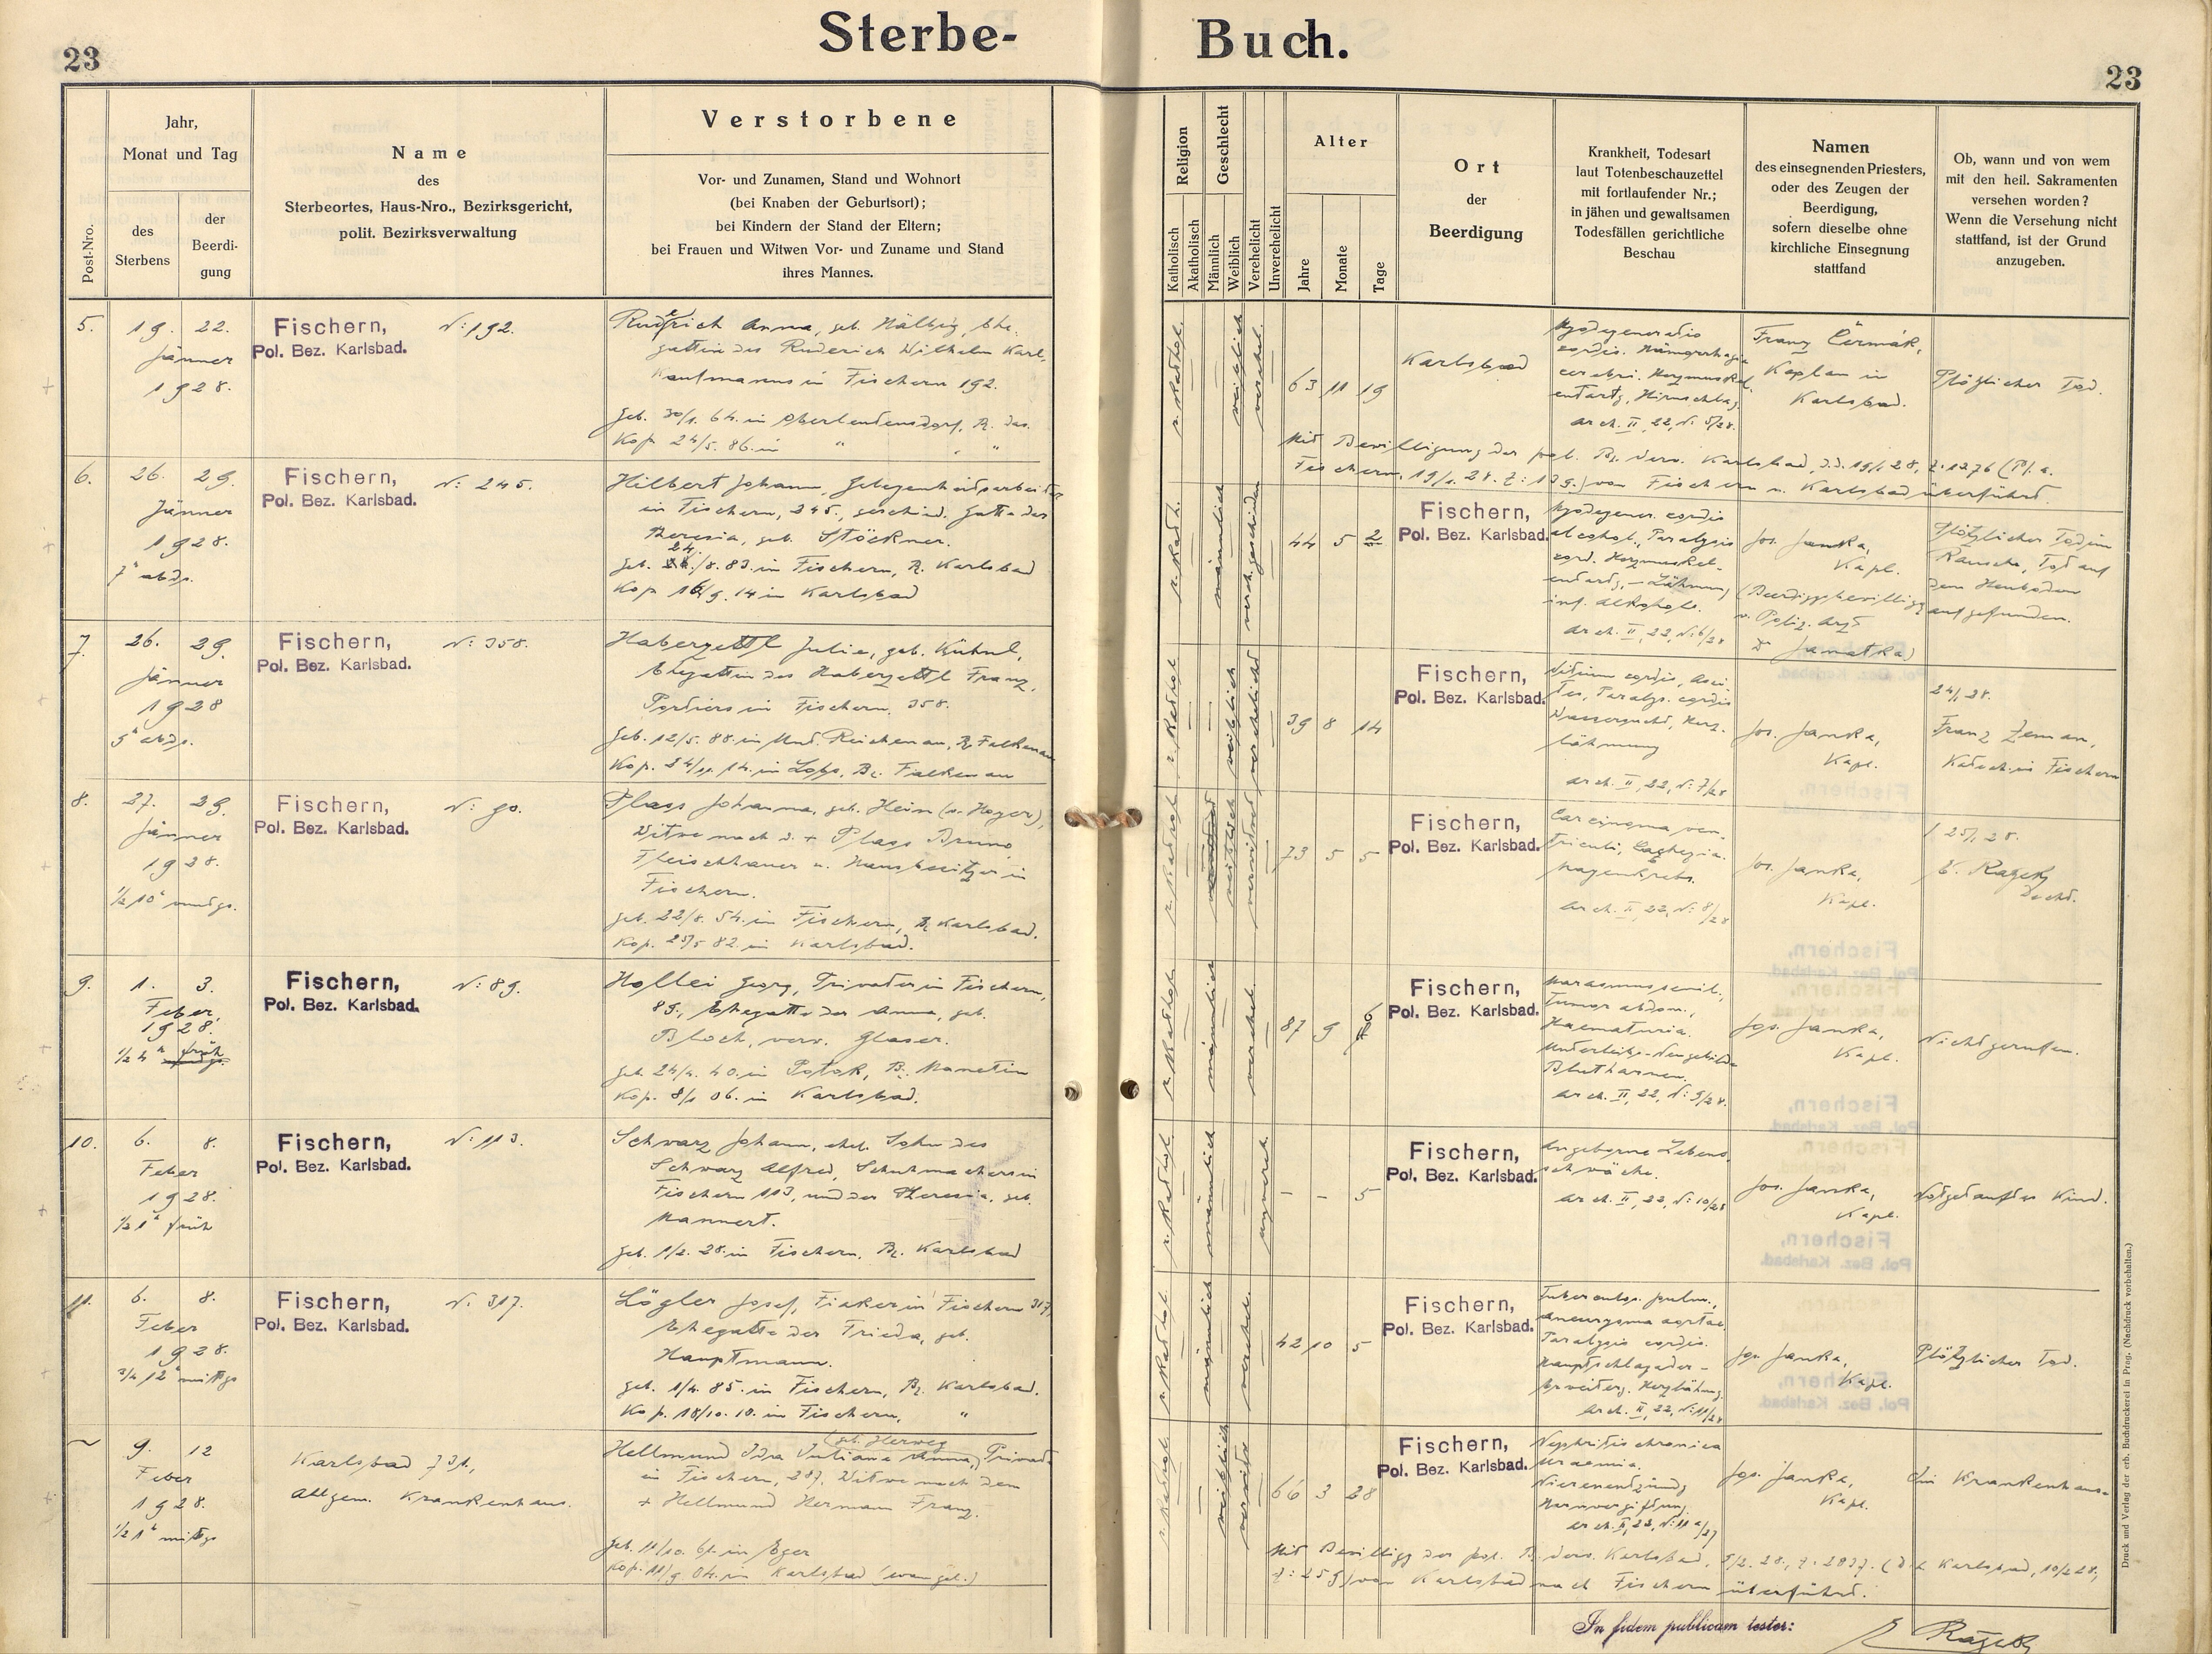 23
Sterbe-
Buch.
23
Post-Nro.
Jahr,
Monat und Tag
des
Sterbens
der
Beerdi-
gung
Name
des
Sterbeortes, Haus-Nro., Bezirksgericht,
polit. Bezirksverwaltung
Verstorbene
Vor- und Zunamen, Stand und Wohnort
(bei Knaben der Geburtsort);
bei Kindern der Stand der Eltern;
bei Frauen und Witwen Vor- und Zuname und Stand
ihres Mannes.
Religion
Katholisch
Akatholisch
Geschlecht
Männlich
Weiblich
Verehelicht
Unverehelicht
Alter
Jahre
Monate
Tage
Ort
der
Beerdigung
Krankheit, Todesart
laut Totenbeschauzettel
mit fortlaufender Nr.;
in jähen und gewaltsamen
Todesfällen gerichtliche
Beschau
Namen
des einsegnenden Priesters,
oder des Zeugen der
Beerdigung,
sofern dieselbe ohne
kirchliche Einsegnung
stattfand
Ob, wann und von wem
mit den heil. Sakramenten
versehen worden?
Wenn die Versehung nicht
stattfand, ist der Grund
anzugeben.
5.
19. 22.
Jänner
1928.
Fischern, N: 192.
Pol. Bez. Karlsbad.
Anna, geb. Hälbig, Ehe-
gattin des Ruderich Wilhelm Karl,
Kaufmanns in Fischern 192.
geb. 30/1. 64. in Oberleutensdorf, Bz. das.
Kop. 24/5. 86. in " "
r. kathol.
weiblich
verehel.
63 11 19
Karlsbad
Myodegeneratio
cordis. Hämorrhagia
cerebri. Herzmuskel-
entartg, Hirnschlag.
arch. II, 22, N: 5/28.
Franz Čermák,
Kaplan in
Karlsbad.
Plötzlicher Tod.
Mit Bewilligung der pol. Bz. Verw. Karlsbad, d.d. 19/1 28, Z: 1276 (
Fischern, 19/1. 28. Z: 129.) von Fischern n. Karlsbad überführt.
6.
26. 29.
Jänner
1928.
7h abds.
Fischern, N: 245.
Pol. Bez. Karlsbad.
Hilbert Johann, Gelegenheitsarbeiter
in Fischern, 245., geschied. Gatte der
Theresia, geb. Stöckner.
geb. 24/8. 83. in Fischern, Bz. Karlsbad
Kop. 16/9. 14 in Karlsbad
r. kath.
männlich
verh. geschieden
44 5 2
Fischern,
Pol. Bez. Karlsbad.
Myodegener. cordis
alcohol., Paralysis
cord. Herzmuskel-
entartg, - Lähmung
inf. Alkohols.
arch. II, 22, N: 6/28
Jos. Janka,
Kapl.
(Beerdiggsbewilligg
v. Poliz. Arzt
Dr Jamatka)
Plötzlicher Tod im
Rausche, Tod auf
dem Heuboden
aufgefunden.
7.
26. 29.
Jänner
1928
Fischern, N: 358.
Pol. Bez. Karlsbad.
Haberzettl Julie, geb. Kühnl,
Ehegattin des Haberzettl Franz,
Portiers in Fischern, 358.
geb. 12/5. 88. in Unt. Reichenau, Bz Falkenau
Kop. 24/11. 14. in Bz. Falkenau
r. kathol.
weiblich
verehelicht
39 8 14
Fischern,
Pol. Bez. Karlsbad.
Vitium cordis, Asci-
tes, Paralys. cordis
Wassersucht, Herz-
lähmung
arch. II, 22, N: 7/28
Jos. Janka,
Kapl.
24/1 28.
Franz Zeman,
Katech. in Fischern
8.
27. 29.
Jänner
1928.
Fischern, N: 90.
Pol. Bez. Karlsbad.
Plass Johanna, geb. Hein (v. Hoyer),
Witwe nach d. + Plass Bruno,
Fleischhauer u. Hausbesitzer in
Fischern.
geb. 22/8. 54. in Fischern, Bz Karlsbad.
Kop. 23/5 82. in Karlsbad.
r. kathol.
weiblich
verwitwet
73 5 5
Fischern,
Pol. Bez. Karlsbad.
Carcinoma ven-
triculi, Cachexia.
Magenkrebs.
arch. II, 22, N: 8/28
Jos. Janka,
Kapl.
25/1 28.
9.
1. 3.
Feber,
1928.
1/2 4h früh
Fischern, N: 89.
Pol. Bez. Karlsbad.
Hollei Georg, Privatier in Fischern,
89., Ehegatte der Anna, geb.
Bloch, verw. Glaser.
geb. 24/4. 40. in Potok, Bz. Manetin
Kop. 8/1 06. in Karlsbad.
r. kathol.
männlich
verehel.
87 9 6
Fischern,
Pol. Bez. Karlsbad.
Marasmus senil.,
Tumor abdom.,
Haematuria.
Unterleibs-Neugebilde
Blutharnen.
arch. II, 22, N: 9/28.
Jos. Janka,
Kapl.
Nicht gerufen.
10.
6. 8.
Feber
1928.
1/2 1h früh
Fischern, N: 113.
Pol. Bez. Karlsbad.
Schwarz Johann, ehel. Sohn des
Schwarz Alfred, Schuhmachers in
Fischern 113, und der Theresia, geb.
Mannert.
geb. 1/2. 28. in Fischern, Bz. Karlsbad
r. kathol.
männlich
unverehel.
- - 5
Fischern,
Pol. Bez. Karlsbad.
Angeborne Lebens-
schwäche.
arch. II, 22, N: 10/28
Jos. Janka,
Kapl.
Notgetauftes Kind.
11.
6. 8.
Feber
1928.
3/4 12h mittgs
Fischern, N: 317.
Pol. Bez. Karlsbad.
Lögler Josef, Fiaker in Fischern 317,
Ehegatte der Frieda, geb.
Hauptmann.
geb. 1/4. 85. in Fischern, Bz. Karlsbad.
Kop. 18/10. 10. in Fischern, "
r. kathol.
männlich
verehel.
42 10 5
Fischern,
Pol. Bez. Karlsbad.
Tuberculos. pulm.,
Aneurysma aortae,
Paralysis cordis.
Hauptschlagader-
Erweiterg. Herzlähmg.
arch. II, 22, N: 11/28
Jos. Janka,
Kapl.
Plötzlicher Tod.
9. 12
Feber
1928.
1/2 1h mittgs
Karlsbad 731,
Allgem. Krankenhaus.
(geb. Herweg
Hellmund Ida Juliane Anna, Privat.
in Fischern, 287. Witwe nach dem
+ Hellmund Hermann Franz.
geb. 11/10. 61. in Eger
Kop. 11/9 04. in Karlsbad (evangel.)
r. kathol.
weiblich
verwitw.
66 3 28
Fischern,
Pol. Bez. Karlsbad.
Nephritis chronica
Uraemia.
Nierenentzündg
Harnvergiftung.
Jos. Janka,
Kapl.
Im Krankenhaus.
Mit Bewilligg der pol. Bz. Verw. Karlsbad, 9/2. 28., Z: 2837. ( Karlsbad, 10/2 28,
Z: 259) von Karlsbad nach Fischern überführt.
In fidem publicam testor:
Druck und Verlag der erb. Buchdruckerei in Prag. (Nachdruck vorbehalten.)